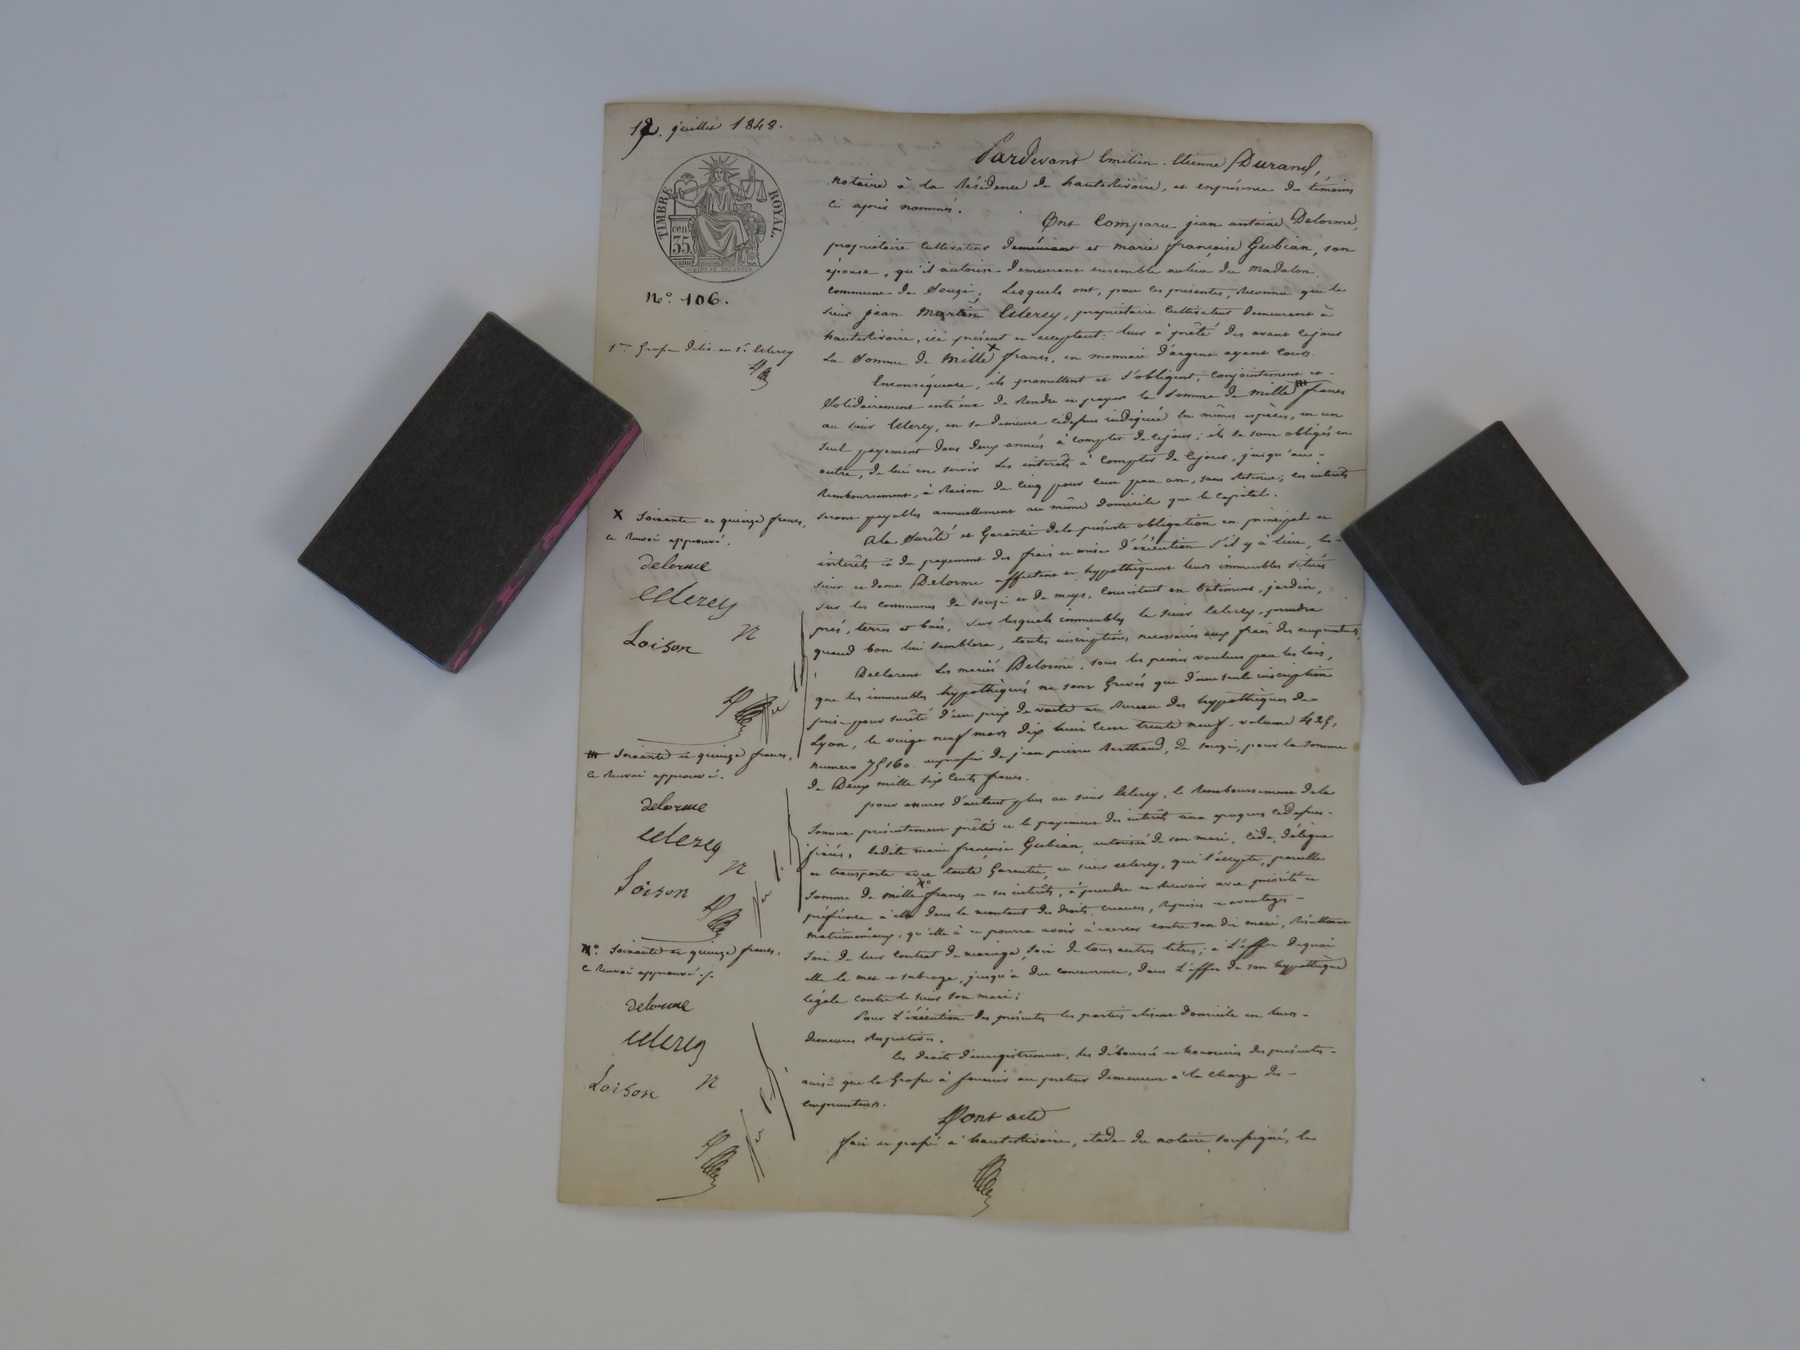 12. juillet 1848.
TIMBRE ROYAL.
cent
35
N° 106.
1ere Grosse délis. au Sr. Clercy
Pardevant Emilien-Etienne Durand,
notaire à la Résidence de hauterivoire, et enprésence des témoins
ci après nommés.
Ont Comparu jean antoine Delorme,
propriétaire cultivateur demeurant et marie françoise Gubian, son
épouse, qu'il autorise demeurans ensemble aulieu du Madalon
commune de Souzi. Lesquels ont, par ces présentes, reconnu que le
sieur jean Martin Clercy, propriétaire Cultivateur demeurant à
hauterivoire, ici présent et acceptant: leur à prêté dès avant cejour
La Somme de Mille + francs, en monnaie d'argent ayant cours.
Enconséquence, ils promettent et s'obligent, conjointement et
Solidairement entr'eux de Rendre et payer la Somme de mille francs
au sieur Clercy, en sa demeure cidessus indiquée en mêmes espèces, en un
seul payement dans deux années à compter de cejour; ils se sont obligés en
outre, de lui en servir les intérêts à compter de cejour, jusqu'au
Remboursement, à Raison de Cinq pour cent par an, sans Retenue; ces intérêts
seront payables annuellement au même domicile que le capital.
A la Sureté et Garantie dela présente obligation en principal et
intérêts et du payement des frais et mise d'éxécution s'il y à lieu, les
sieur et dame Delorme affectent et hypothèquent leurs immeubles situés
sur les communes de souzi et de meys, Consistant en bâtimens, jardin,
prés, terres et bois. Sur lesquels immeubles le sieur Clercy, prendra
quand bon lui semblera, toutes inscriptions nécessaires aux frais des emprunteurs.
Déclarent Les mariés Delorme, sous les peines voulues par les lois,
que les immeubles hypothèqués ne sont Grevés que d'une seule inscription
prise pour sureté d'un prix de vente au Bureau des hypothèques de
Lyon, le vingt neuf mars dix huit cent trente neuf, volume 425,
numero 75160 auprofit de jean pierre Berthaud, de souzi, pour la somme
de Deux mille six Cents francs.
pour assurer d'autant plus au sieur Clercy, le Remboursement dela
Somme présentement prêtée et le payement des intérêts aux epoques cidessus
fixées, ladite marie françoise Gubian, autorisée de son mari, cède, délègue
et transporte avec toute Garantie, au sieur Clercy, qui l'accepte, pareille
somme de mille N° francs et ses intérêts, à prendre et Recevoir avec priorité et
préférence à elle dans le montant des droits, creances, Reprises et avantages
matrimoniaux, qu'elle à et pourra avoir à exercer contre son dit mari, Résultans
soit de leur contrat de mariage, soit de tous autres titres; à L'effet dequoi
elle le met et subroge, jusqu'à due concurrence, dans L'effet de son hypothèque
légale contre le sieur son mari;
Pour L'éxécution des présentes les parties élisent domicile en leurs
demeures Respectives.
Les droits d'enregistrement, les déboursés et honoraires des présentes
ainsi que la Grosse à fournir au prêteur demeurent à la Charge des
emprunteurs.
Dont acte
fait et passé à hauterivoire, etude du notaire soussigné, le
X Soixante et quinze francs,
ce Renvoi approuvé.
delorme
Clercy
Loison
Soixante et quinze francs,
ce Renvoi approuvé.
delorme
Clercy
Loison
N° Soixante et quinze francs,
ce Renvoi approuvé./.
delorme
Clercy
Loison